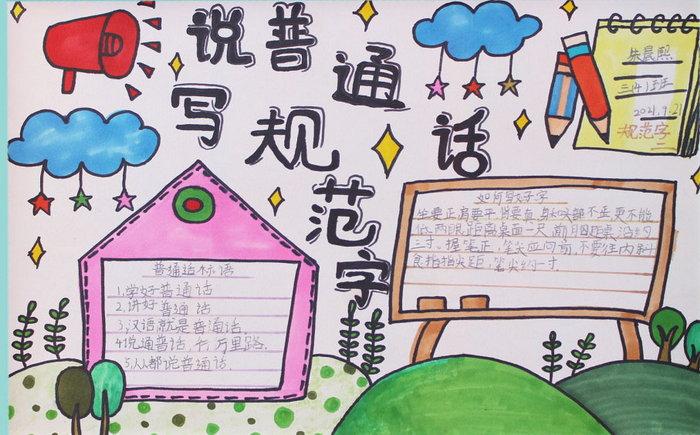 说普通话
写规范字
朱晨熙
三(4)班
2021.9.21
规范字
普通话标语
1.学好普通话
2.讲好普通话
3.汉语就是普通话.
4.说通普话,万里路.
5.人都说普通话.
如何写好字
坐要正,肩要平,背要直,身不歪更不能
低,两眼距离桌面一尺,前胸距桌沿约
三寸。握笔正,笔尖应向前,不要往内斜
食指尖距,笔尖约一寸.